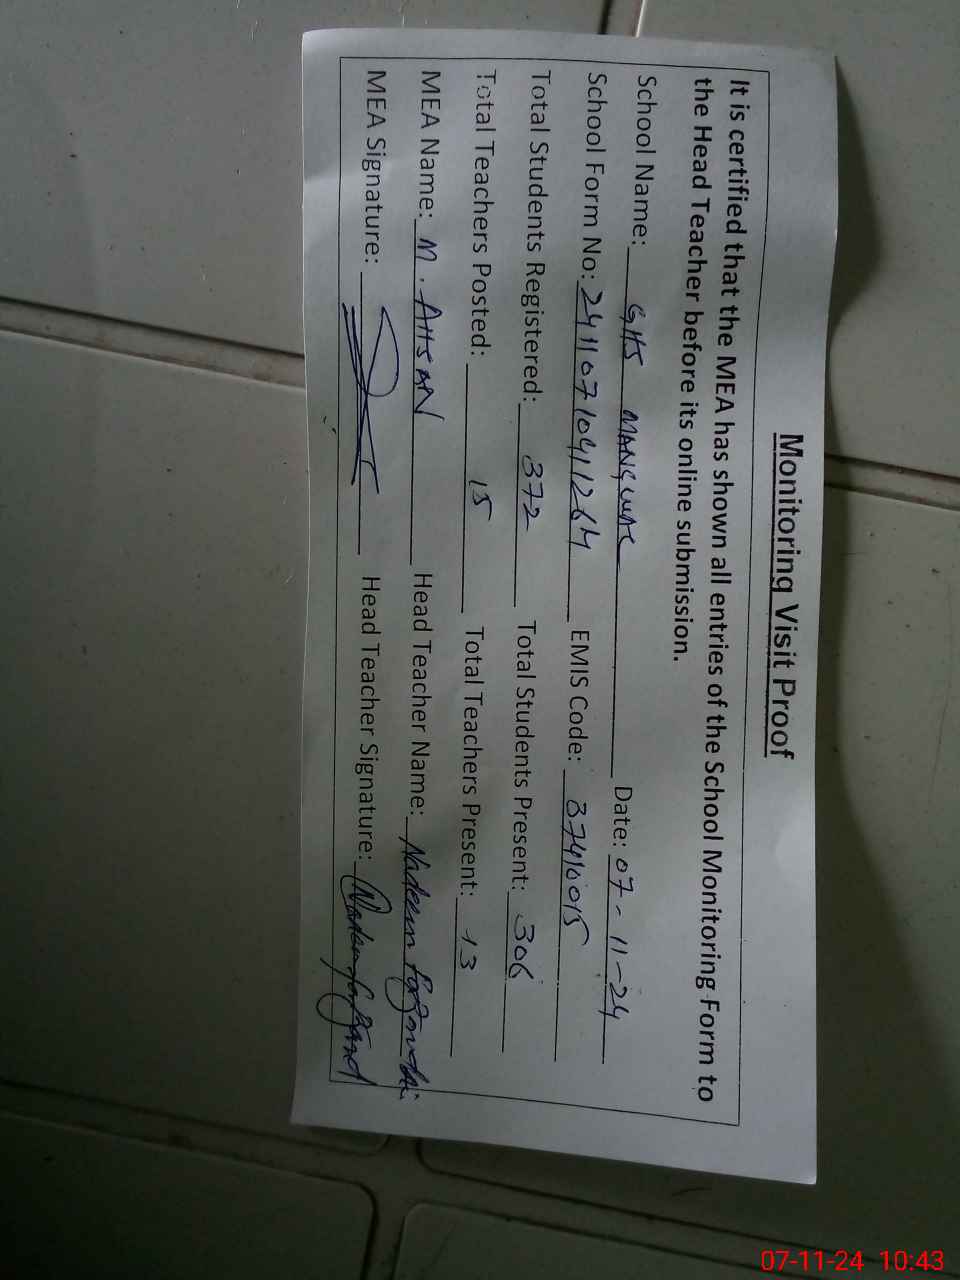 Monitoring Visit Proof
It is certified that the MEA has shown all entries of the School Monitoring Form to
the Head Teacher before its online submission.
School Name: GHS MANGWAL Date: 07-11-24
School Form No: 241107104112614 EMIS Code: 37410015
Total Students Registered: 372 Total Students Present: 306
Total Teachers Posted: 15 Total Teachers Present: 13
MEA Name: M. AHSAN Head Teacher Name: Nadeem
MEA Signature: Head Teacher Signature:
07-11-24 10:43